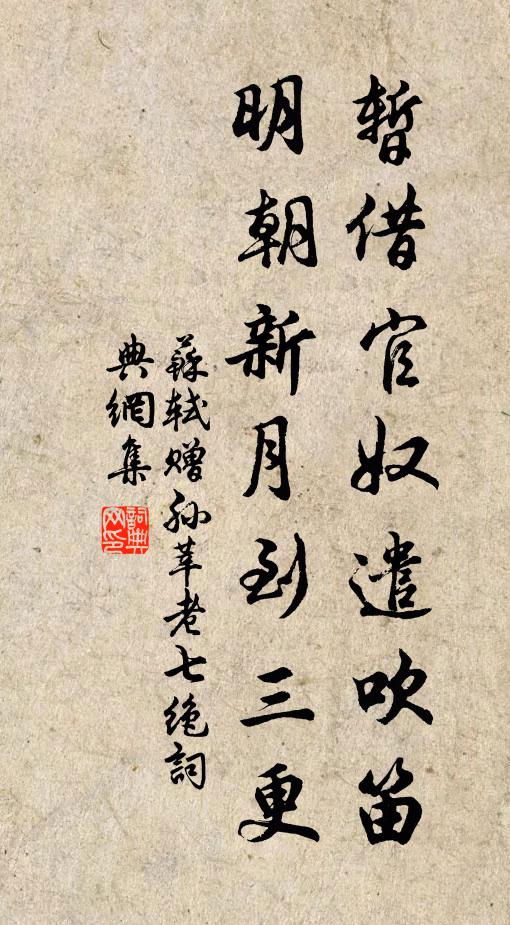 暫借官奴遣吹笛
明朝新月到三更
蘇軾贈孫莘老七絕詞
典網集
詞典
网印